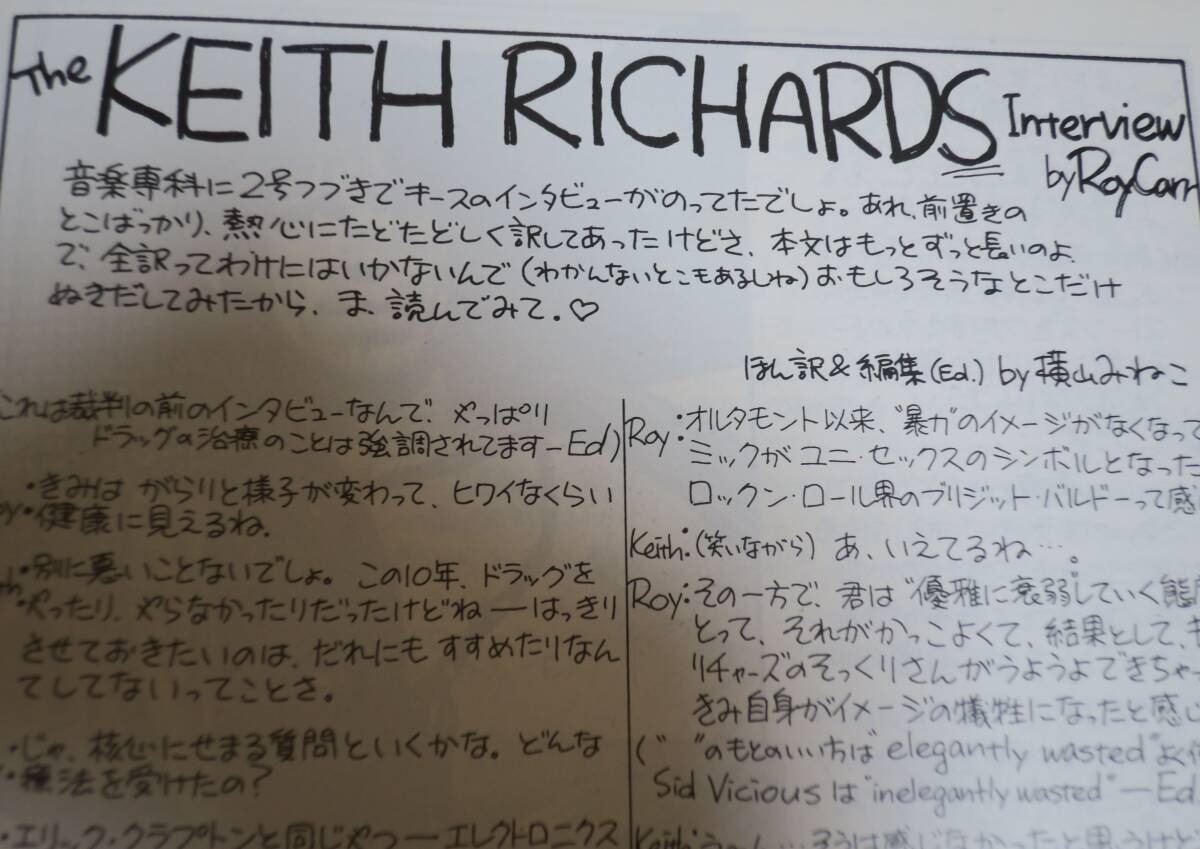 The KEITH RICHARDS Interview
by Roy Carr
音楽専科に2号つづきでキースのインタビューがのってたでしょ。あれ、前置きの
とこばっかり、熱心にたどたどしく訳してあったけどさ、本文はもっとずっと長いのよ、
で、全訳ってわけにはいかないんで(わかんないとこもあるしね)おもしろそうなとこだけ
ぬきだしてみたから、ま、読んでみて。♡
ほん訳&編集(Ed.) by 横山みねこ
これは裁判の前のインタビューなんで、やっぱり
ドラッグの治療のことは強調されてます—Ed)
:きみは がらりと様子が変わって、ヒワイなくらい
健康に見えるね。
:別に悪いことないでしょ。この10年、ドラッグを
やったり、やらなかったりだったけどね—はっきり
させておきたいのは、だれにもすすめたりなん
てしてないってことさ。
:じゃ、核心にせまる質問といくかな。どんな
療法を受けたの?
:エリック・クラプトンと同じやつ—エレクトロニクス
Roy:オルタモント以来、"暴力"のイメージがなくなって
ミックがユニ・セックスのシンボルとなった
ロックン・ロール界のブリジット・バルドーって感
Keith:(笑いながら) あ、いえてるね…。
Roy:その一方で、君は"優雅に衰弱していく態
とって、それがかっこよくて、結果として、
リチャーズのそっくりさんがうようよできちゃ
きみ自身がイメージの犠牲になったと感
(" "のもとのいいちは"elegantly wasted"よく
Sid Vicious は"inelegantly wasted"—Ed
Keith:う〜ん…そうは感じなかったと思うけど